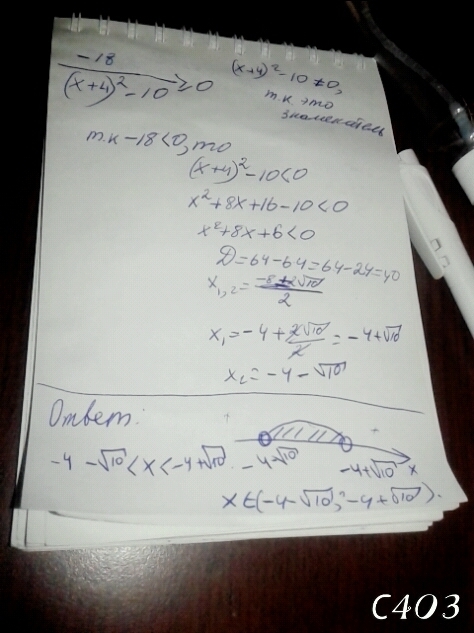 -18 / (x+4)² - 10 ≥ 0
(x+4)² - 10 ≠ 0,
т.к. это
знаменатель
т.к -18<0, то
(x+4)² - 10 < 0
x² + 8x + 16 - 10 < 0
x² + 8x + 6 < 0
D = 64 - 64 = 64 - 24 = 40
x₁,₂ = -8 ± 2√10 / 2
x₁ = -4 + 2√10 / 2 = -4 + √10
x₂ = -4 - √10
Ответ:
+ +
-4 - √10 < x < -4 + √10
-4 - √10 -4 + √10 x
x ∈ (-4 - √10; -4 + √10).
C403